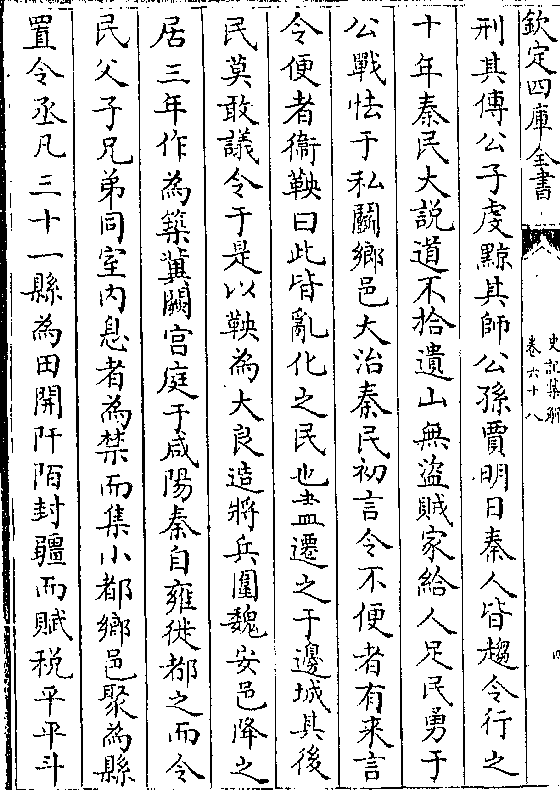 欽定四庫全書
史記集解
卷六十八
四
刑其傅公子虔黥其師公孫賈明日秦人皆趨令行之
十年秦民大說道不拾遺山無盜賊家給人足民勇于
公戰怯于私鬭鄉邑大治秦民初言令不便者有来言
令便者衛鞅曰此皆亂化之民也盡遷之于邊城其後
民莫敢議令于是以鞅為大良造將兵圍魏安邑降之
居三年作為築冀闕宫庭于咸陽秦自雍徙都之而令
民父子兄弟同室内息者為禁而集小都鄉邑聚為縣
置令丞凡三十一縣為田開阡陌封疆而賦税平平斗